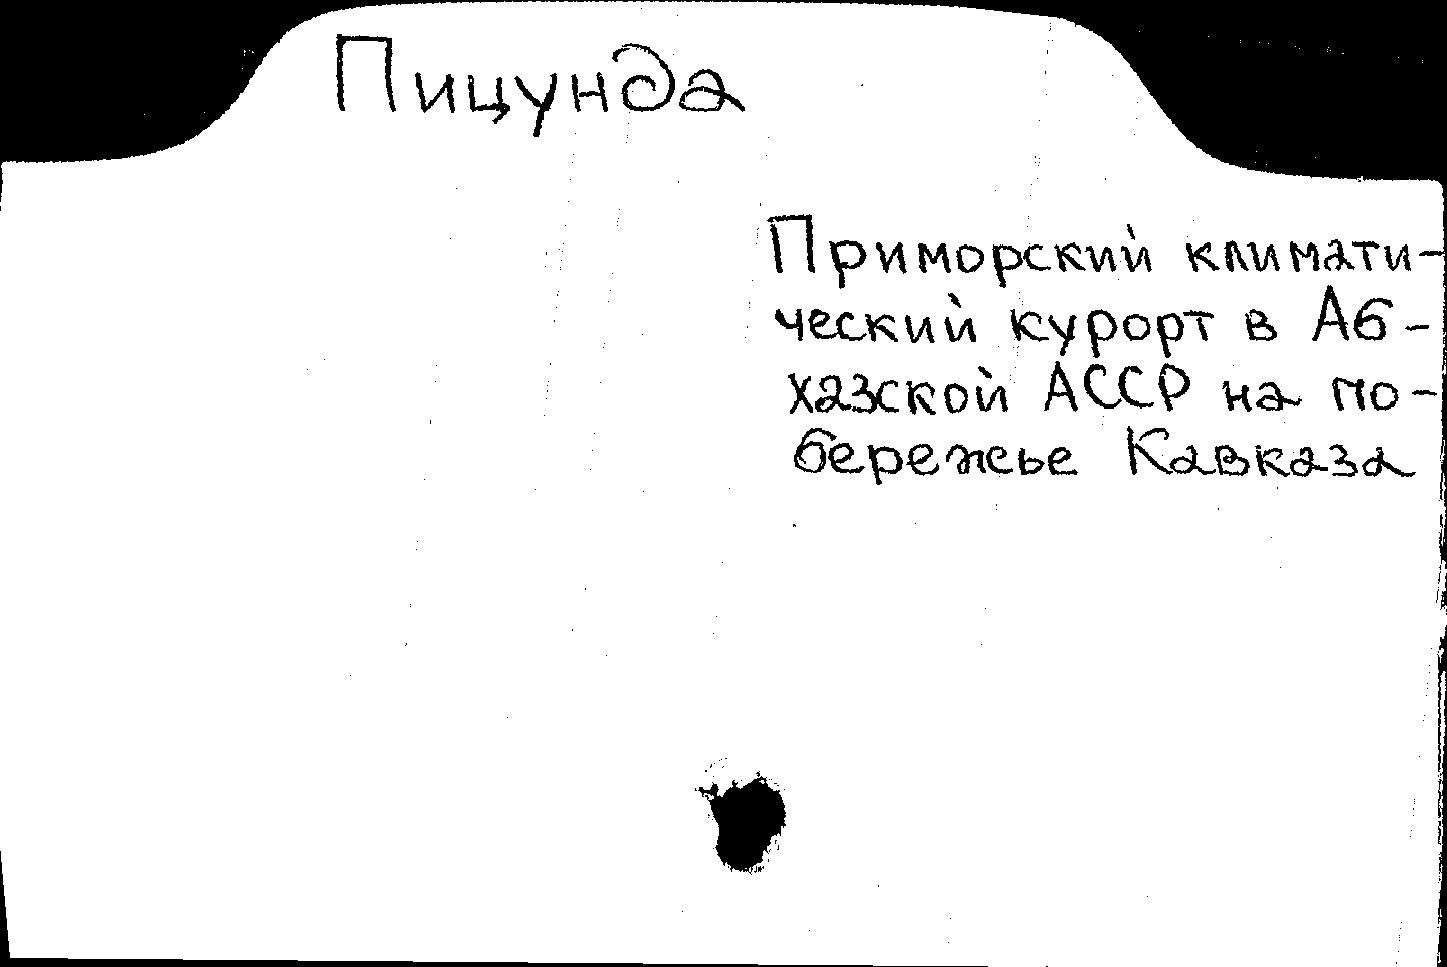 Пицунда
Приморский климати-
ческий курорт в Аб-
хазской АССР на по-
бережье Кавказа